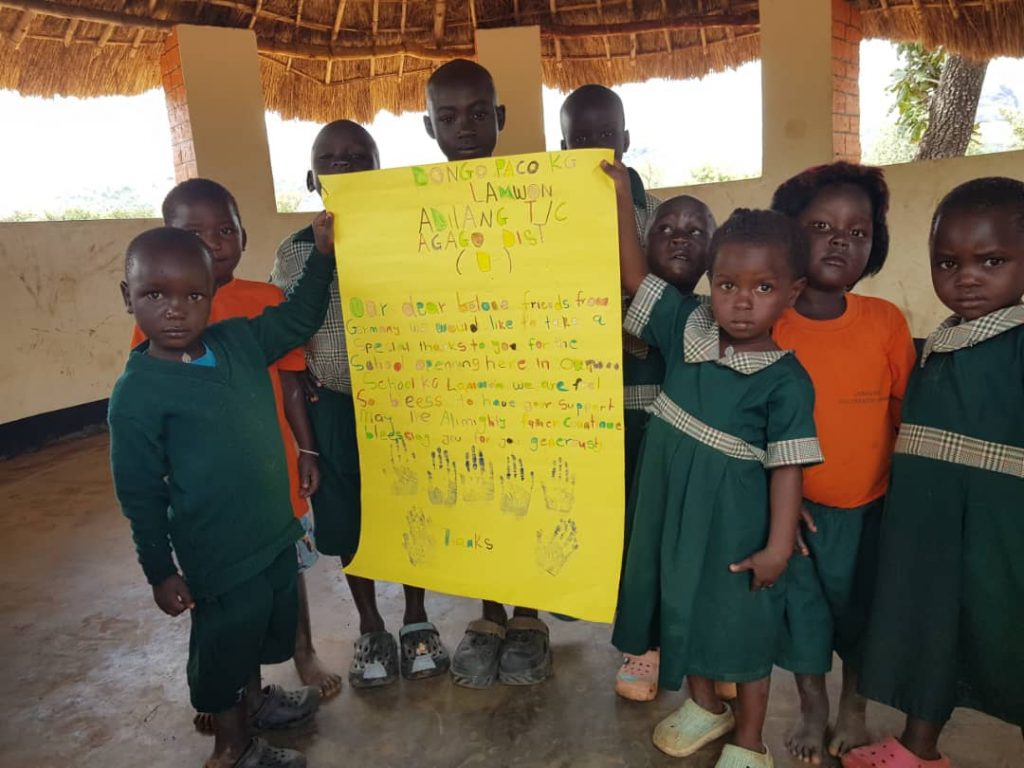 DONGO PACO KG
LAMWON
ADILANG T/C
AGAGO DIST
Our dear belove friends from
Germany we would like to take a
Special thanks to you for the
School openning here in Our
School KG Lamwon we are feel
So bless to have your support
May the Almighty father Countinue
blessing you for you generousty
thanks